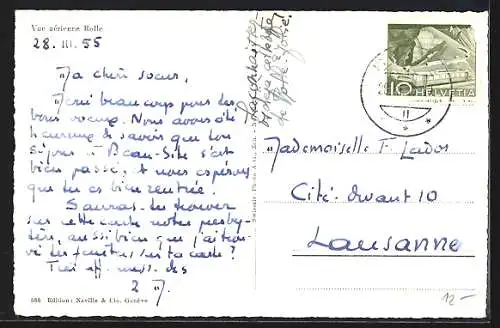 Vue aérienne Rolle
28. III. 55
Ma chère soeur,
Merci beaucoup pour tes
bons voeux. Nous avons été
heureuse de savoir que ton
séjour à Beau-Site s'est
bien passé, et nous espérons
que tu es bien rentrée.
Sauras-tu trouver
sur cette carte notre presby-
tère, aussi bien que j'ai trou-
vé les fenêtres sur ta carte?
Très aff. mess. des
2
580 Edition: Naville & Cie, Genève
de Rolle
10 HELVETIA
Mademoiselle F. Lador
Cité-devant 10
Lausanne
12.-